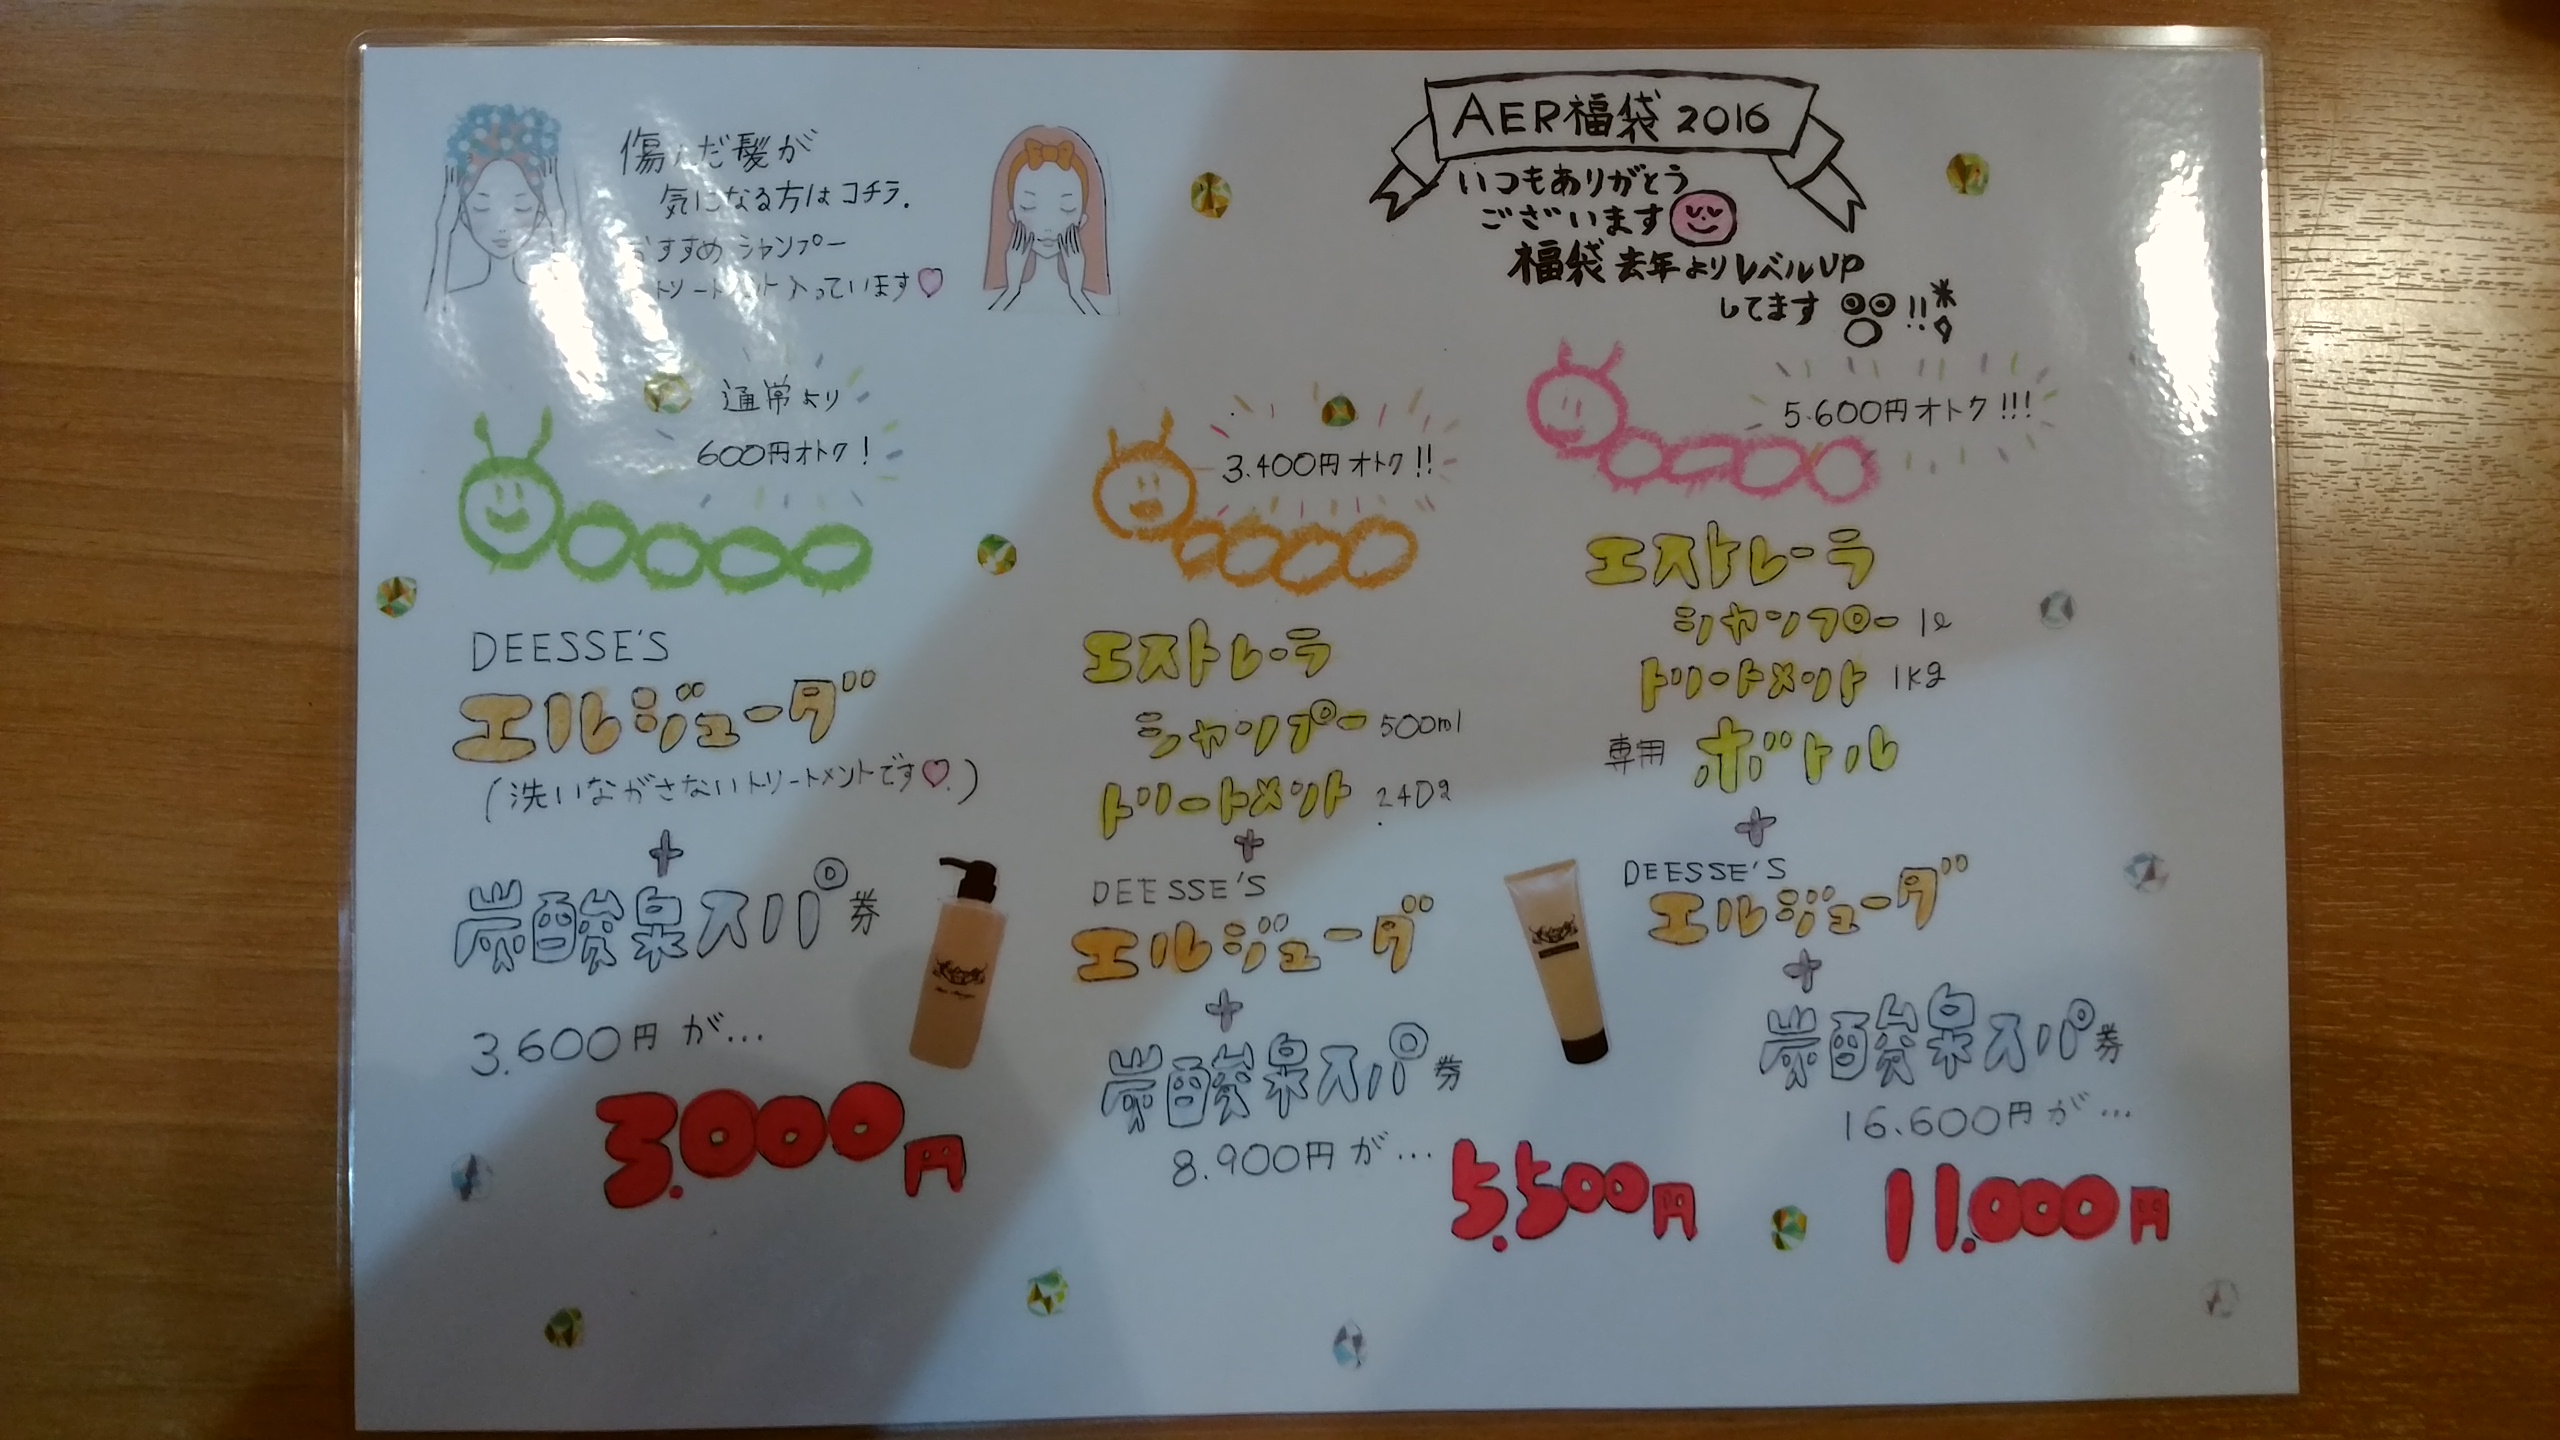 傷んだ髪が
気になる方はコチラ.
おすすめ シャンプー
トリートメント入っています♡
AER福袋 2016
いつもありがとう
ございます
福袋 去年よりレベルUP
してます !!
通常より
600円オトク!
DEESSE'S
エルジューダ
(洗いながさないトリートメントです♡.)
+
炭酸泉スパ券
3.600円が…
3.000円
3.400円オトク!!
エストレーラ
シャンプー 500ml
トリートメント 240g
+
DEESSE'S
エルジューダ
+
炭酸泉スパ券
8.900円が…
5.500円
5.600円オトク!!!
エストレーラ
シャンプー 1ℓ
トリートメント 1kg
専用 ボトル
+
DEESSE'S
エルジューダ
+
炭酸泉スパ券
16.600円が…
11.000円